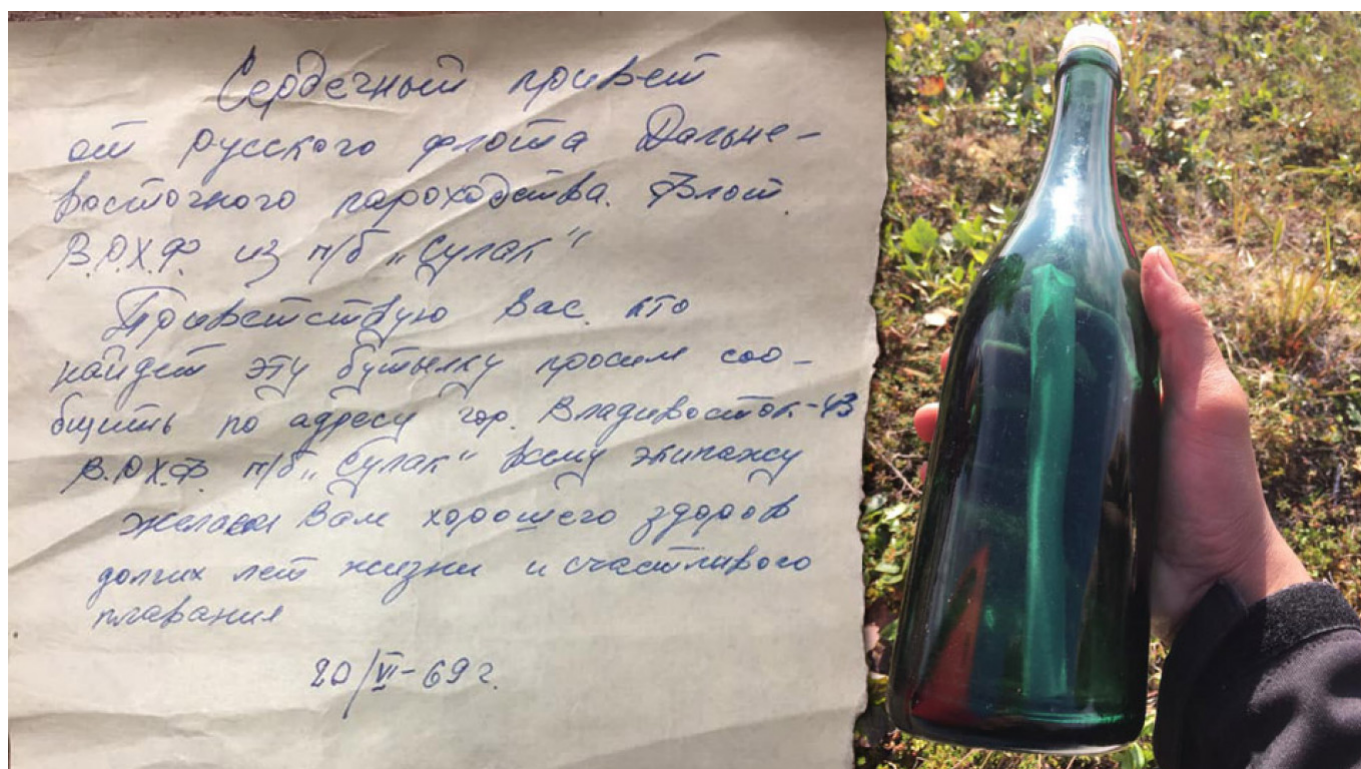 Сердечный привет
от русского флота Дальне-
восточного пароходства. Флот
В.О.Х.Ф. из п/б „Сулак“
Приветствую вас кто
найдет эту бутылку просим соо-
бщить по адресу гор. Владивосток-43
В.О.Х.Ф. п/б „Сулак“ всему экипажу
желаем Вам хорошего здоров
долгих лет жизни и счастливого
плавания
20/VI-69 г.